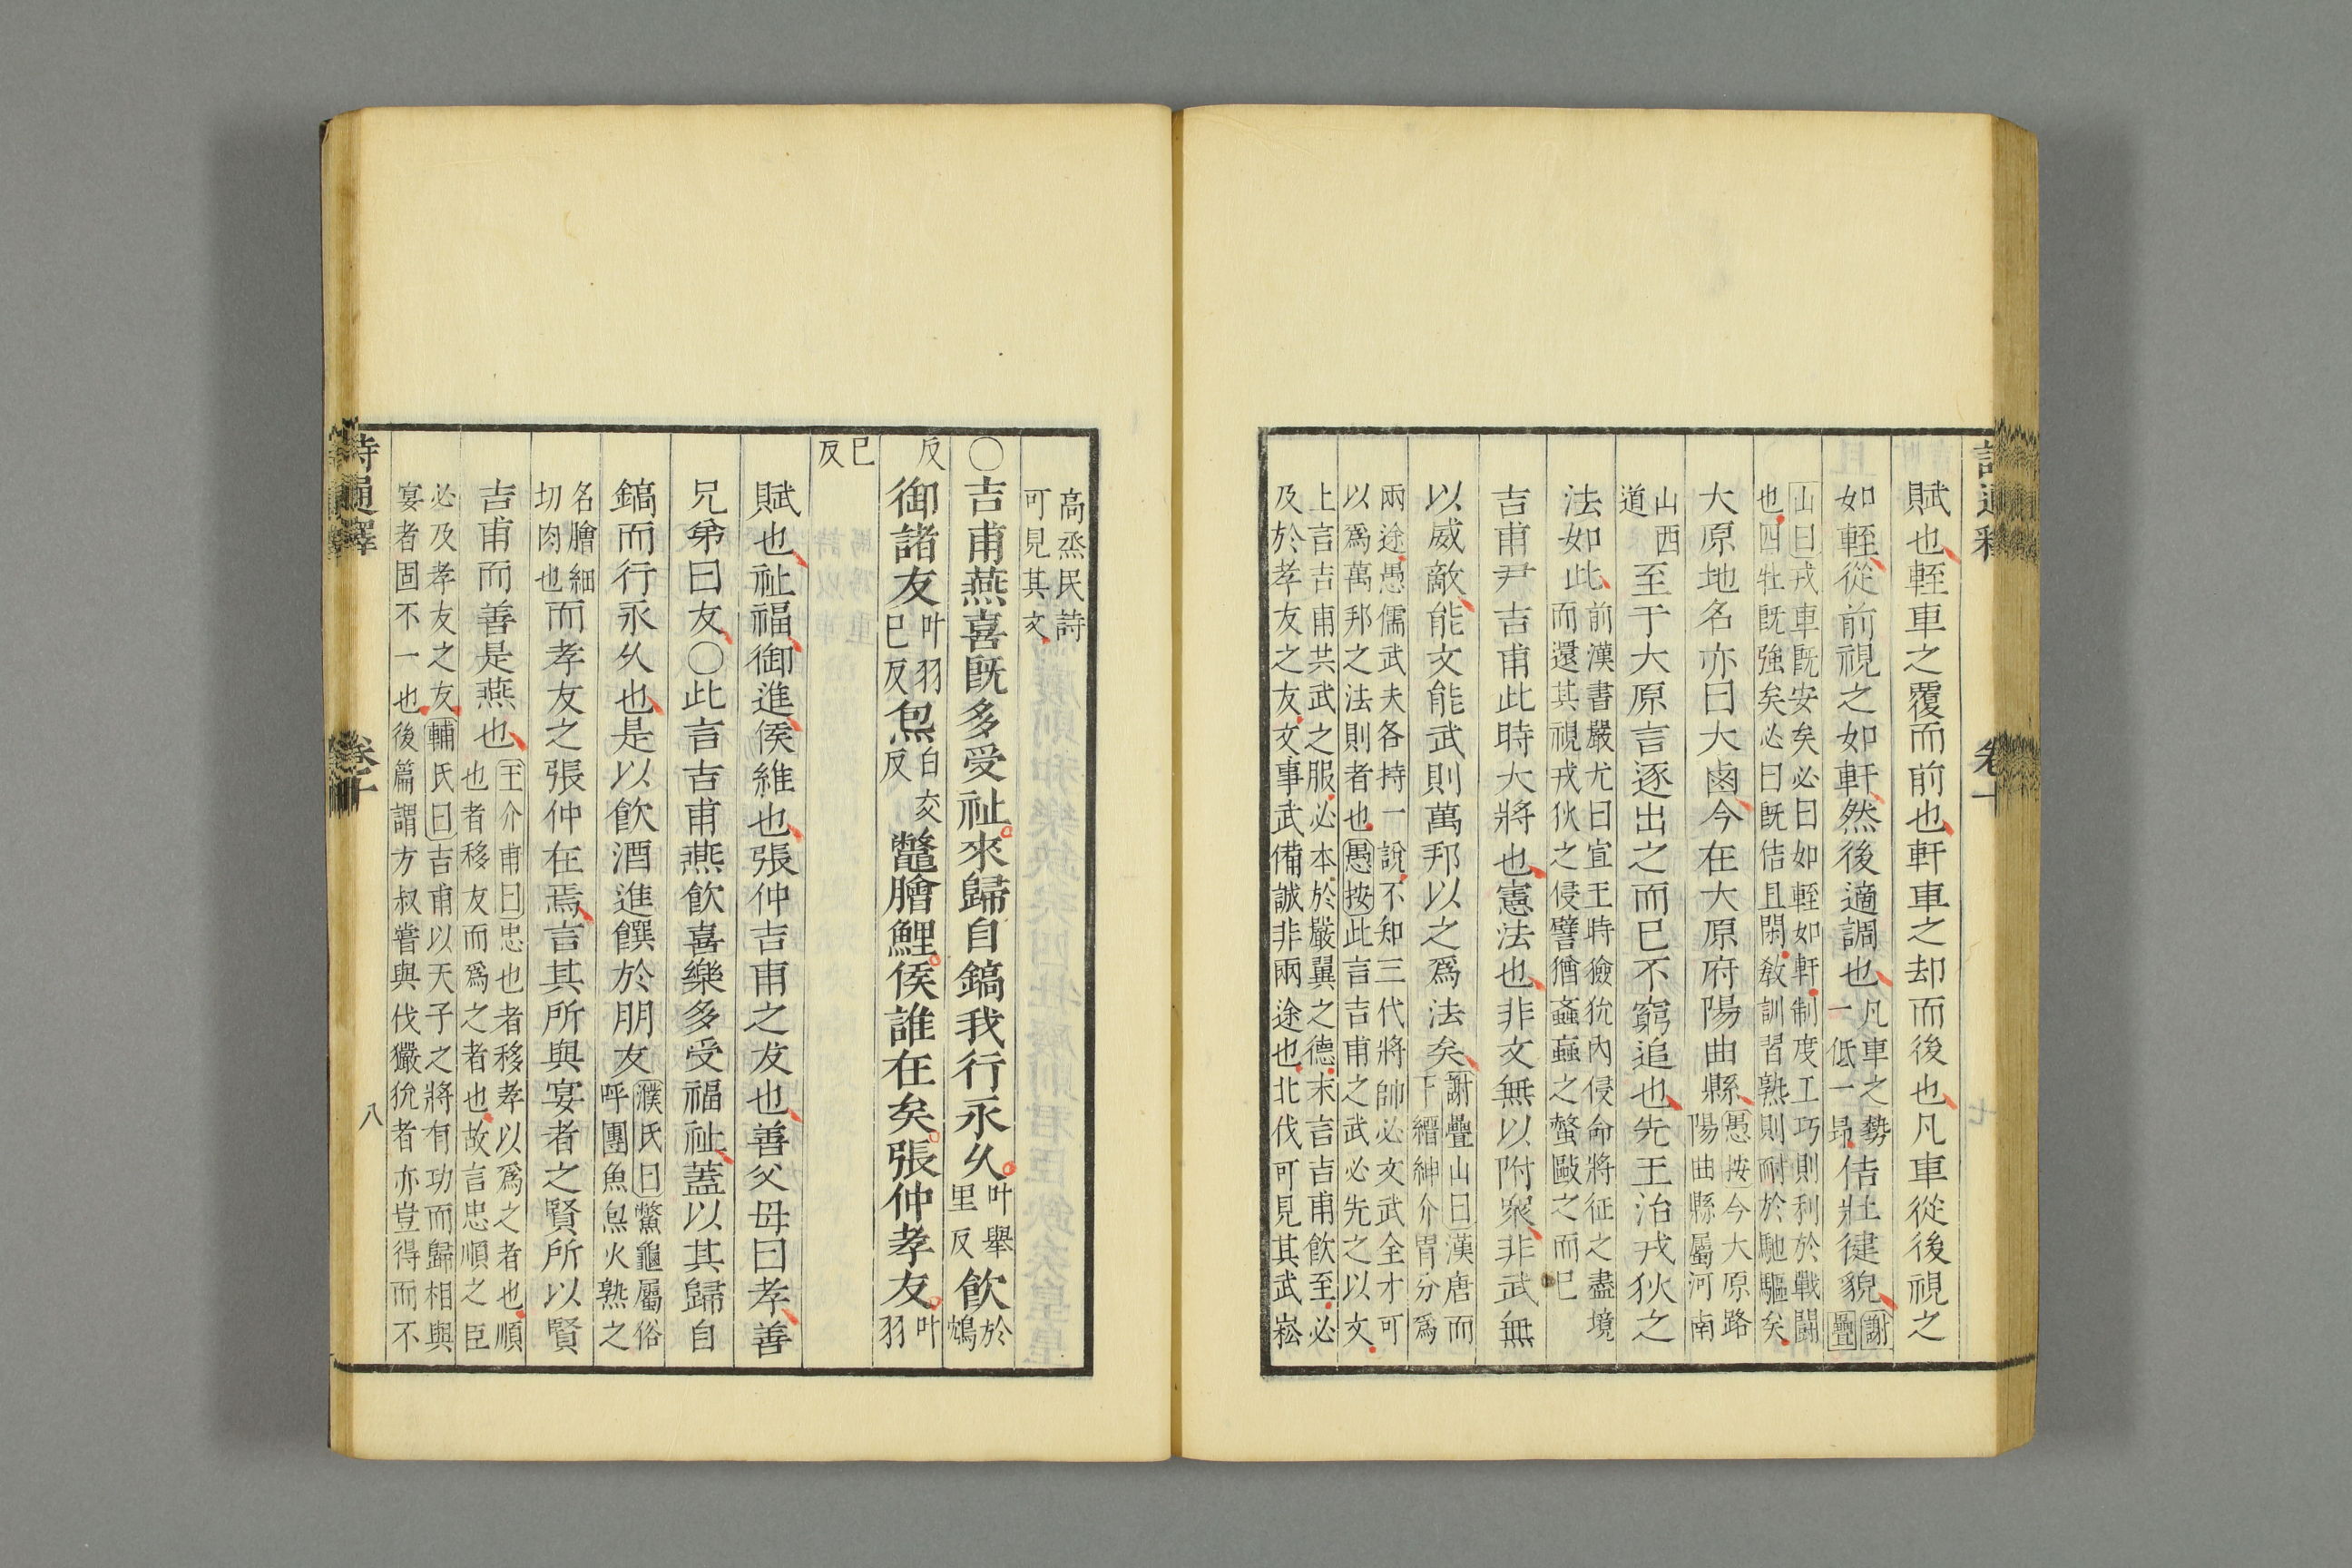 賦也輊車之覆而前也軒車之却而後也凡車從後視之
如輊從前視之如軒然後適調也凡車之勢一低一昻佶壯健貌謝疊
山曰戎車既安矣必曰如輊如軒制度工巧則利於戰鬪
也四牡既強矣必曰既佶且閑敎訓習熟則耐於馳驅矣
大原地名亦曰大鹵今在大原府陽曲縣愚按今大原路陽曲縣屬河南
山西道至于大原言逐出之而已不窮追也先王治戎狄之
法如此前漢書嚴尤曰宣王時獫狁內侵命將征之盡境而還其視戎狄之侵譬猶蟁蝱之螫敺之而已
吉甫尹吉甫此時大將也憲法也非文無以附衆非武無
以威敵能文能武則萬邦以之爲法矣謝疊山曰漢唐而下縉紳介冑分爲
兩途愚儒武夫各持一說不知三代將帥必文武全才可
以爲萬邦之法則者也愚按此言吉甫之武必先之以文
上言吉甫共武之服必本於嚴翼之德末言吉甫飮至必
及於孝友之友文事武備誠非兩途也北伐可見其武崧
卷十
高烝民詩可見其文
○吉甫燕喜既多受祉來歸自鎬我行永久叶舉里反飮於鴆
反御諸友叶羽已反炰白交反鼈膾鯉侯誰在矣張仲孝友叶羽
已反
賦也祉福御進侯維也張仲吉甫之友也善父母曰孝善
兄弟曰友○此言吉甫燕飮喜樂多受福祉蓋以其歸自
鎬而行永久也是以飮酒進饌於朋友濮氏曰鱉龜屬俗呼團魚炰火熟之
名膾細切肉也而孝友之張仲在焉言其所與宴者之賢所以賢
吉甫而善是燕也王介甫曰忠也者移孝以爲之者也順也者移友而爲之者也故言忠順之臣
必及孝友之友輔氏曰吉甫以天子之將有功而歸相與
宴者固不一也後篇謂方叔嘗與伐玁狁者亦豈得而不
詩通釋
卷十
八